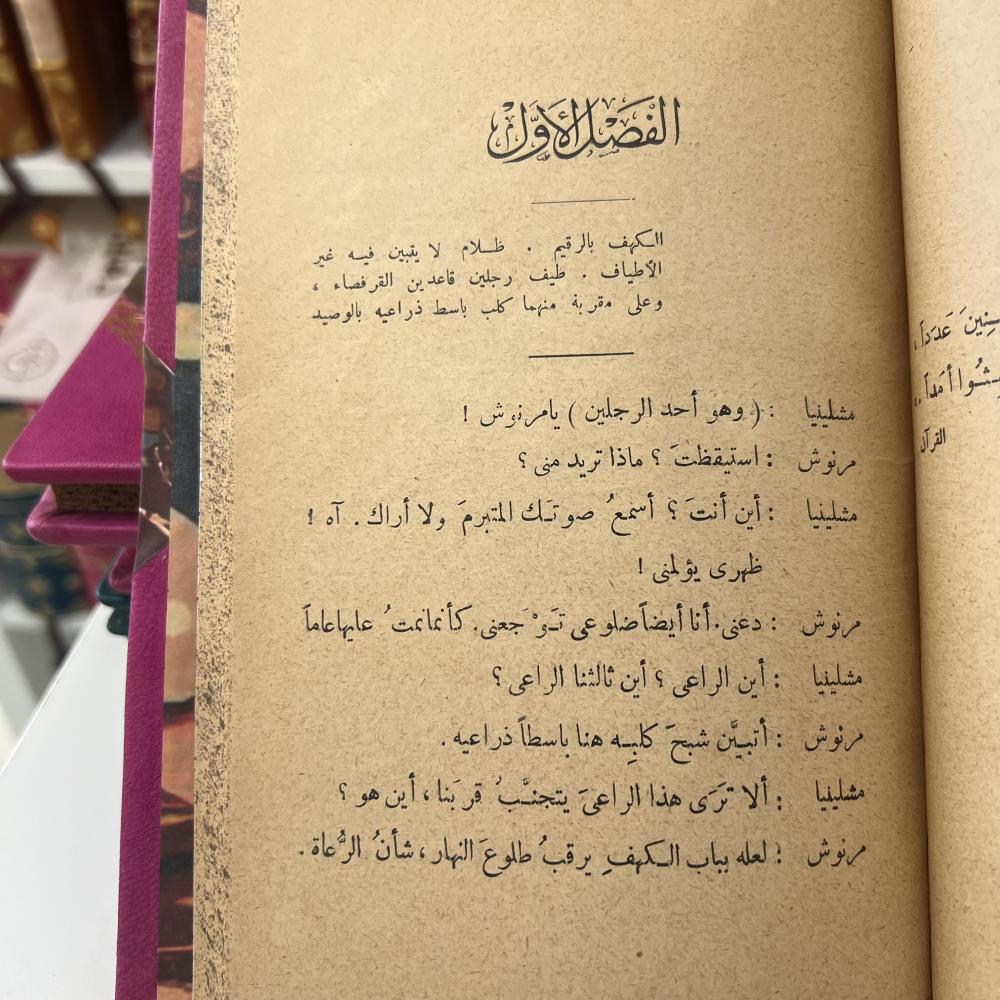 سنين عدداً ،
أمداً ..
القرآن
الفَصْلُ الأَوَّل
الكهف بالرقيم . ظلام لا يتبين فيه غير
الأطياف . طيف رجلين قاعدين القرفصاء ،
وعلى مقربة منهما كلب باسط ذراعيه بالوصيد
مشلينيا : ( وهو أحد الرجلين ) يامرنوش !
مرنوش : استيقظتَ ؟ ماذا تريد منى ؟
مشلينيا : أين أنتَ ؟ أسمعُ صوتك المتبرمَ ولا أراك . آه !
ظهرى يؤلمنى !
مرنوش : دعنى . أنا أيضاً ضلوعى تَوْجَعنى . كأنما نمتُ عليها عاماً
مشلينيا : أين الراعى ؟ أين ثالثنا الراعى ؟
مرنوش : أتبيَّن شبحَ كلبِه هنا باسطاً ذراعيه .
مشلينيا : ألا ترَى هذا الراعىَ يتجنَّبُ قربَنا ، أين هو ؟
مرنوش : لعله بباب الكهفِ يرقبُ طلوعَ النهار ، شأنُ الرُّعاة .